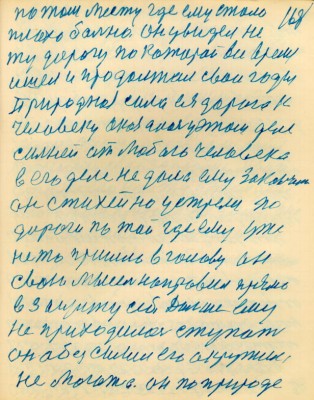 168
по том месту где ему стало
плохо больно он увидел не
ту дорогу по которой он время
ишел и продолжал свои годы
Природная сила ея дорога к
человеку оказалась этом деле
силней от любого человека
в его деле не дала ему закончит
он стихейно устрели по
дороги по той где ему уже
не то пришло в голову он
свою мысел направил прямо
в защиту себ Дальше ему
не приходилос ступат
он обессилил его окружил
не могота он по природе